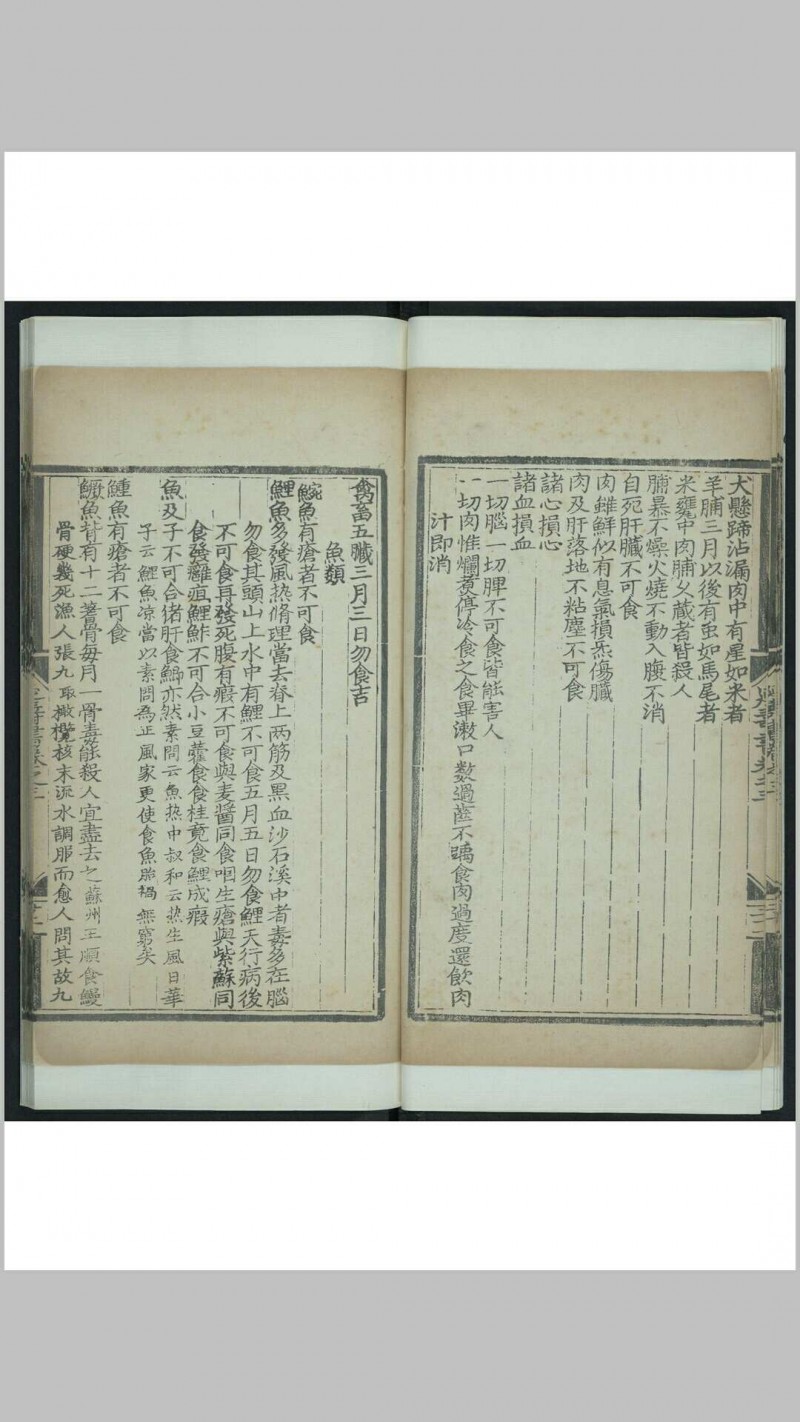 犬懸蹄沾漏肉中有星如米者
羊脯三月以後有虫如馬尾者
米甕中肉脯乆藏者皆殺人
脯暴不燥火燒不動入腹不消
自死肝臟不可食
肉雖鮮似有息氣損炁傷臟
肉及肝落地不粘塵不可食
諸心損心
諸血損血
一切腦一切脾不可食皆能害人
一切肉惟爛煑停冷食之食畢漱口數過齒不齲食肉過度還飲肉
汁即消
禽畜五臟三月三日勿食吉
魚類
鯇魚有瘡者不可食
鯉魚多發風热脩理當去脊上兩筋及黑血沙石溪中者毒多在腦
勿食其頭山上水中有鯉不可食五月五日勿食鯉天行病後
不可食再發死腹有瘕不可食與麦醬同食咽生瘡與紫蘇同
食發癰疽鯉鮓不可合小豆藿食食桂竟食鯉成瘕
魚及子不可合猪肝食鯽亦然素問云魚热中叔和云热生風日華
子云鯉魚凉當以素問為正風家更使食魚貽禍無窮矣
鯶魚有瘡者不可食
鱖魚背有十二鬐骨每月一骨毒能殺人宜盡去之蘇州王順食鰻
骨硬幾死漁人張九取橄欖核末流水調服而愈人問其故九